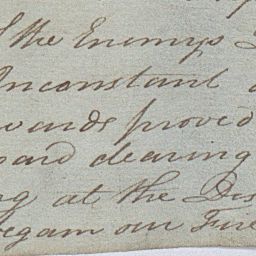 the Enemys
Inconstant
wards proved
oard clearing
g at the Dis
egan our Fire